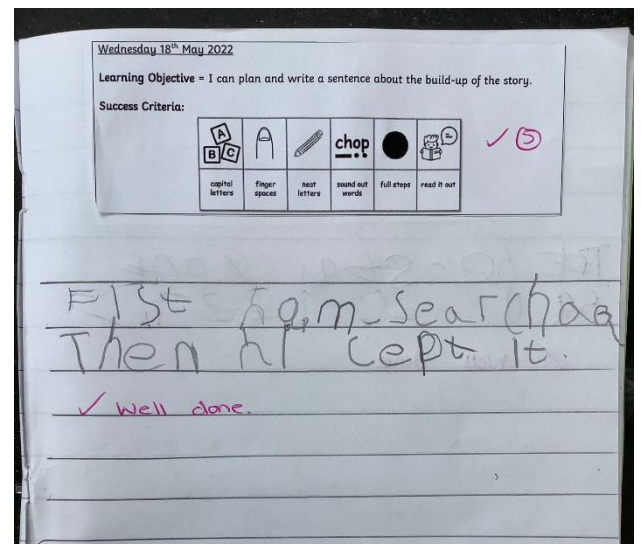 Wednesday 18th May 2022
Learning Objective = I can plan and write a sentence about the build-up of the story.
Success Criteria:
A B C
chop
✓ 5
capital letters finger spaces neat letters sound out words full stops read it out
FIst
Then hI cept It.
✓ Well done.